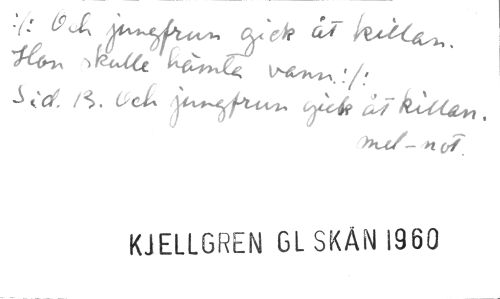 :/: Och jungfrun gick åt killan.
Hon skulle hämta vann :/:
Sid. 13. Och jungfrun gick åt killan.
mel-not.
KJELLGREN GL SKÅN 1960